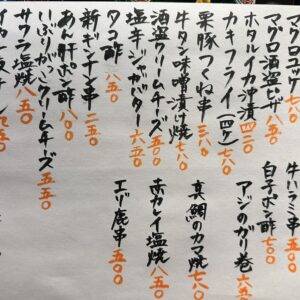 マグロユッケ 七八〇
マグロ酒盗ピザ 八五〇
ホタルイカ沖漬 四二〇
カキフライ(四ケ) 七八〇
栗豚つくね串 三八〇
牛タン味噌漬け焼 七八〇
塩辛ジャガバター 六五〇
酒盗クリームチーズ 五五〇
タコ酢 八五〇
新ギンナン串 二五〇
あん肝ポン酢 八〇〇
いぶりがっこクリームチーズ 五五〇
サワラ塩焼 八五〇
牛ハラミ串 五〇〇
白子ポン酢 七〇〇
アジのがり巻 六五〇
真鯛のカマ焼 七八〇
赤カレイ塩焼 八五〇
エゾ鹿串 五〇〇